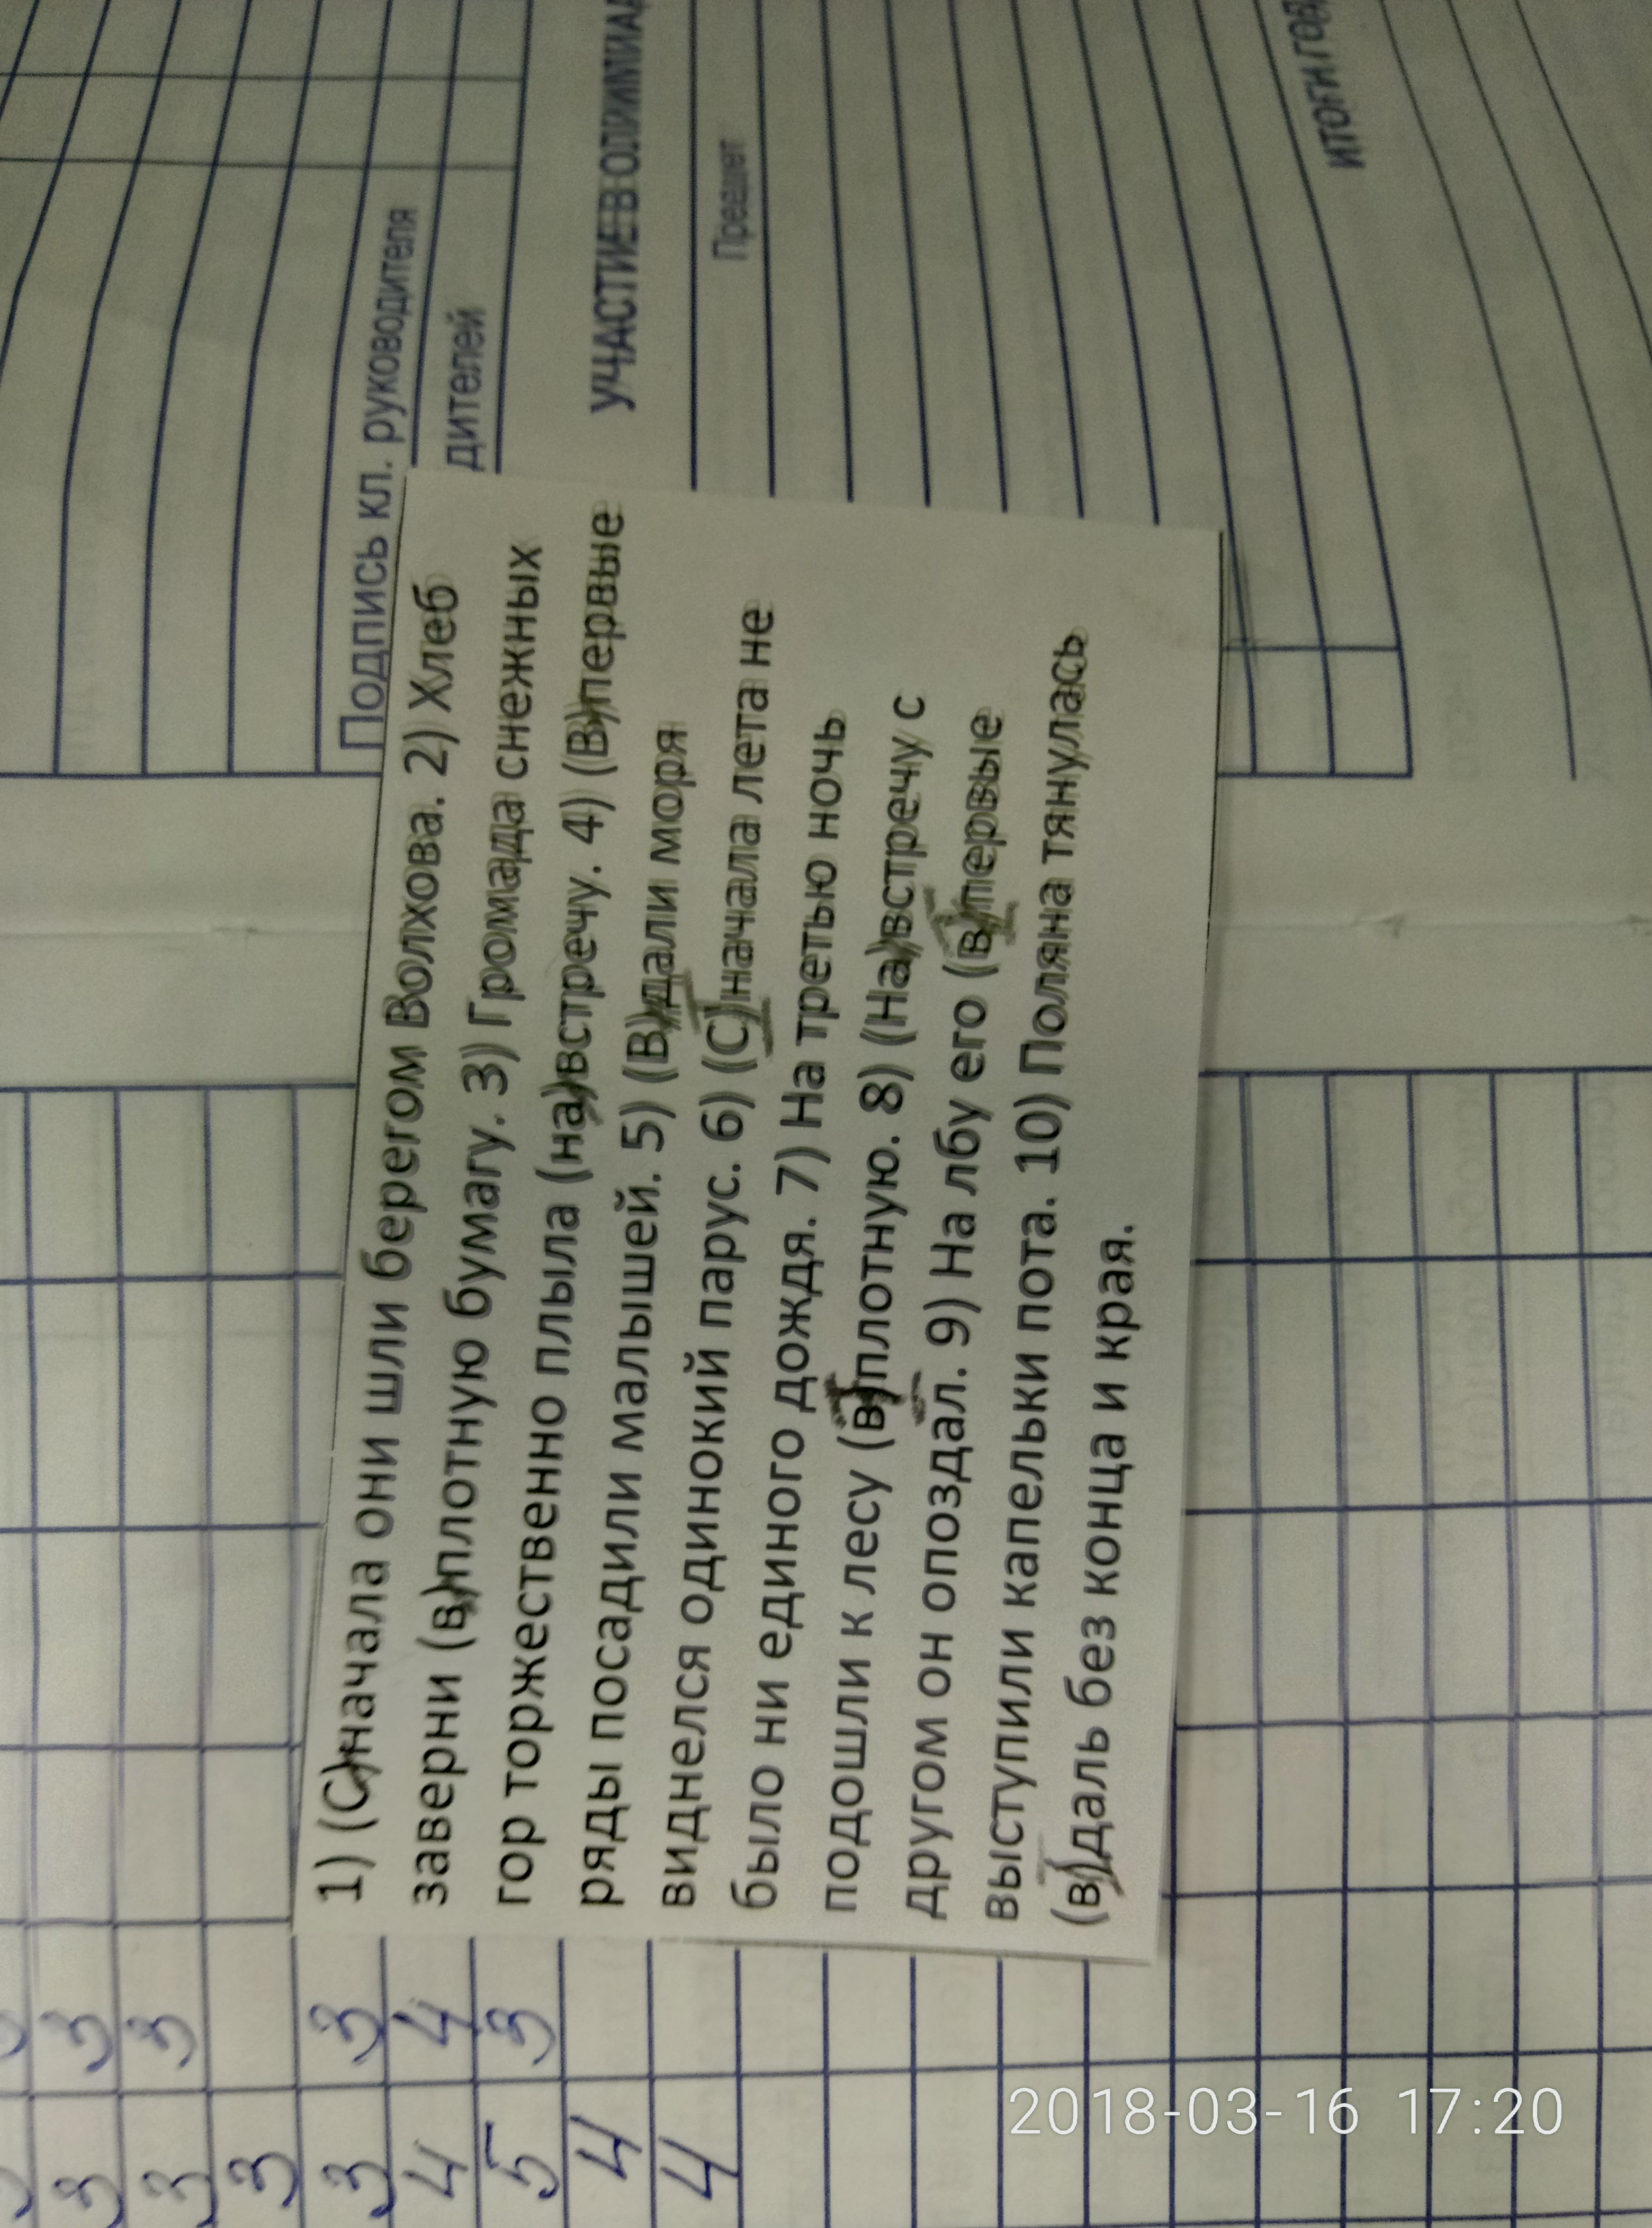 1) (С)начала они шли берегом Волхова. 2) Хлеб
заверни (в)плотную бумагу. 3) Громада снежных
гор торжественно плыла (на)встречу. 4) (В)первые
ряды посадили малышей. 5) (В)дали моря
виднелся одинокий парус. 6) (С)начала лета не
было ни единого дождя. 7) На третью ночь
подошли к лесу (в)плотную. 8) (На)встречу с
другом он опоздал. 9) На лбу его (в)первые
выступили капельки пота. 10) Поляна тянулась
(в)даль без конца и края.
Подпись кл. руководителя
дителей
УЧАСТИЕ В ОЛИМПИАД
Предмет
ИТОГИ ГОВ
3 3
3 3
3
3 3
4 4
5 3
4
4
2018-03-16 17:20